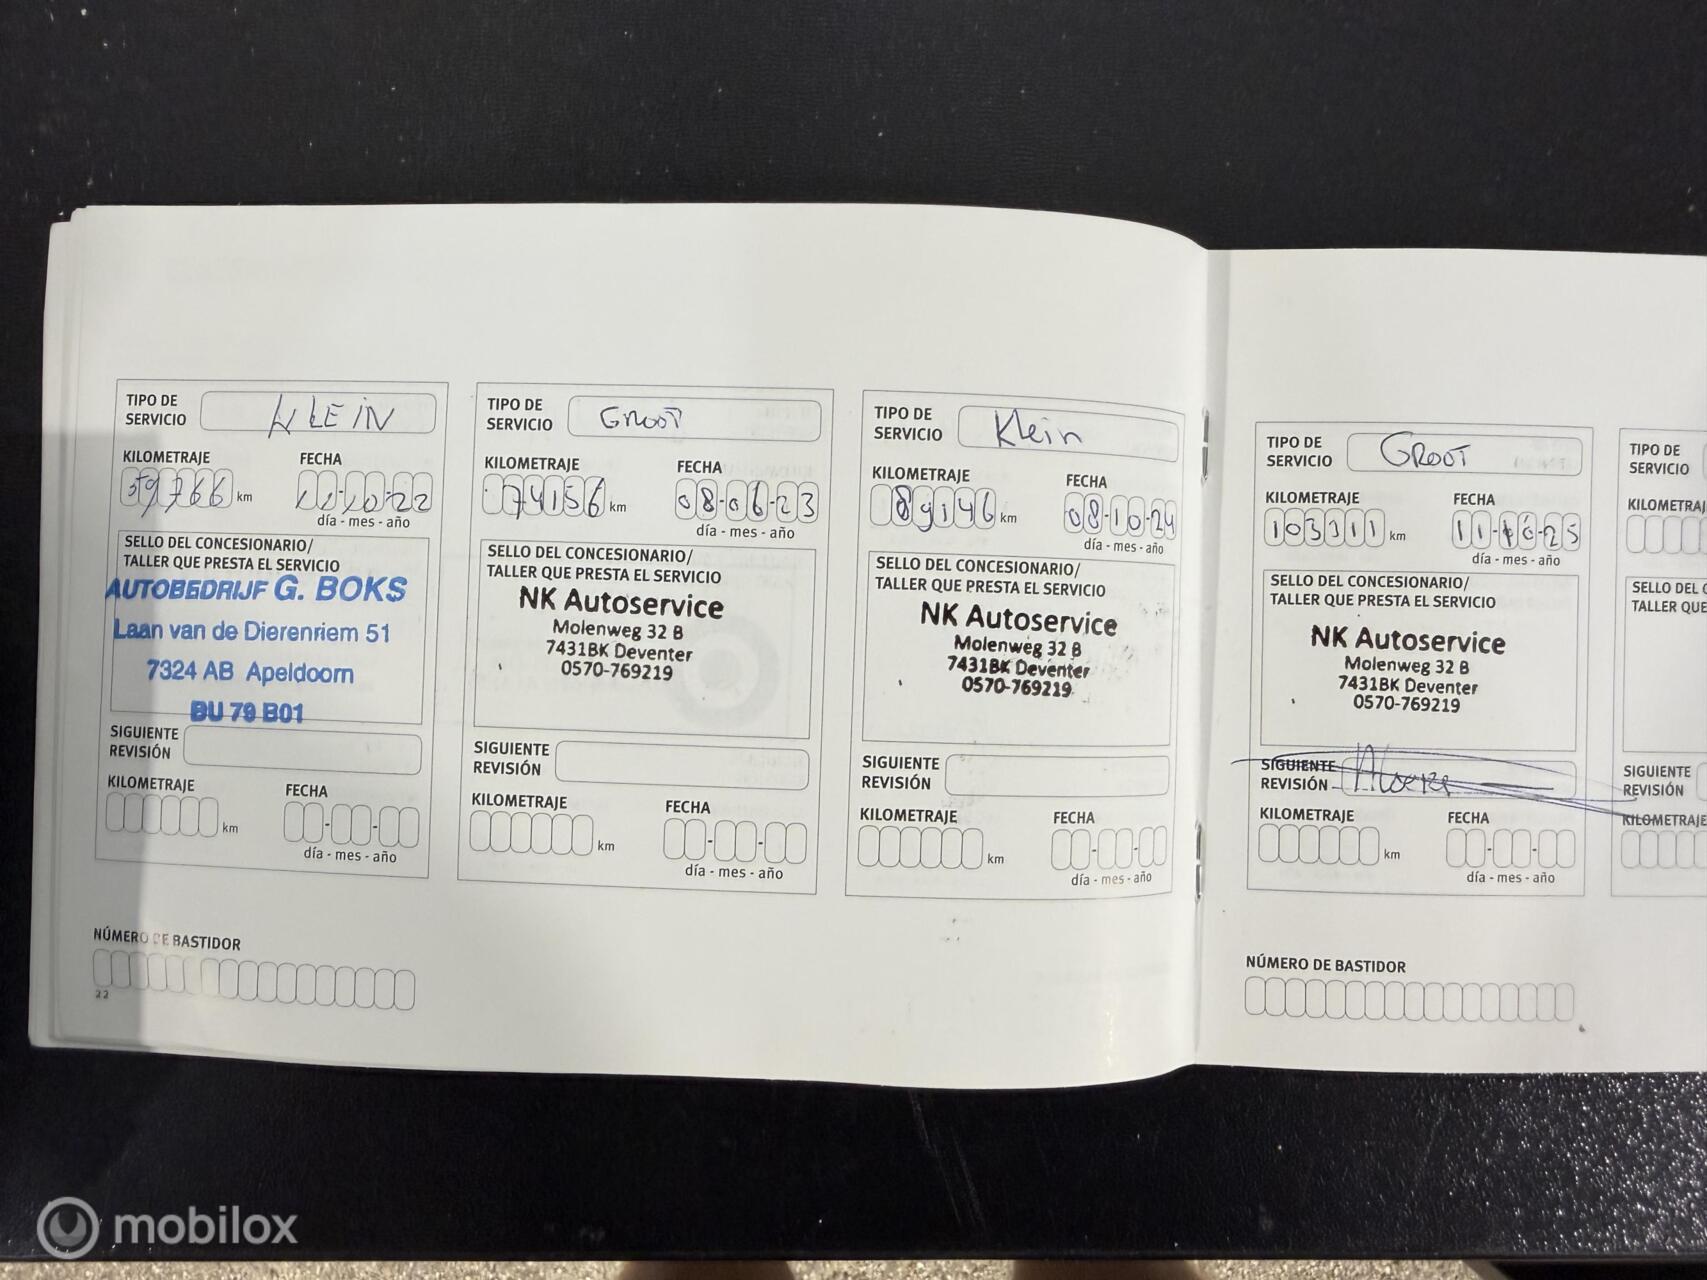 TIPO DE
SERVICIO KLEIN
KILOMETRAJE FECHA
59766 km 11-10-22
día - mes - año
SELLO DEL CONCESIONARIO/
TALLER QUE PRESTA EL SERVICIO
AUTOBEDRIJF G. BOKS
Laan van de Dierenriem 51
7324 AB Apeldoorn
BU 79 B01
SIGUIENTE
REVISIÓN
KILOMETRAJE FECHA
km
día - mes - año
TIPO DE
SERVICIO GROOT
KILOMETRAJE FECHA
74156 km 08-06-23
día - mes - año
SELLO DEL CONCESIONARIO/
TALLER QUE PRESTA EL SERVICIO
NK Autoservice
Molenweg 32 B
7431BK Deventer
0570-769219
SIGUIENTE
REVISIÓN
KILOMETRAJE FECHA
km
día - mes - año
TIPO DE
SERVICIO Klein
KILOMETRAJE FECHA
89146 km 08-10-24
día - mes - año
SELLO DEL CONCESIONARIO/
TALLER QUE PRESTA EL SERVICIO
NK Autoservice
Molenweg 32 B
7431BK Deventer
0570-769219
SIGUIENTE
REVISIÓN
KILOMETRAJE FECHA
km
día - mes - año
NÚMERO DE BASTIDOR
22
TIPO DE
SERVICIO GROOT
KILOMETRAJE FECHA
103311 km 11-10-25
día - mes - año
SELLO DEL CONCESIONARIO/
TALLER QUE PRESTA EL SERVICIO
NK Autoservice
Molenweg 32 B
7431BK Deventer
0570-769219
SIGUIENTE
REVISIÓN
KILOMETRAJE FECHA
km
día - mes - año
NÚMERO DE BASTIDOR
TIPO DE
SERVICIO
KILOMETRAJ
SELLO DEL
TALLER QUE
SIGUIENTE
REVISIÓN
KILOMETRAJE
mobilox